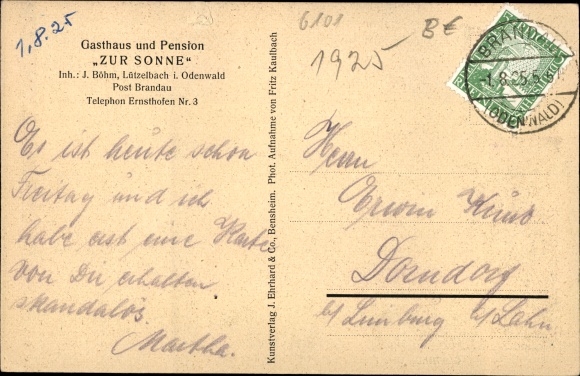 1.8.25
Gasthaus und Pension
„ZUR SONNE"
Inh.: J. Böhm, Lützelbach i. Odenwald
Post Brandau
Telephon Ernsthofen Nr. 3
Es ist heute schon
Freitag und ich
habe erst eine Karte
von Du erhalten
skandalös.
Martha.
Kunstverlag J. Ehrhard & Co., Bensheim. Phot. Aufnahme von Fritz Kaulbach
6101
B€
1925
BRANDAU
1.8.25.5
(ODENWALD)
Herrn
Erwin
Dorndorf
b/ Limburg b/ Lahn